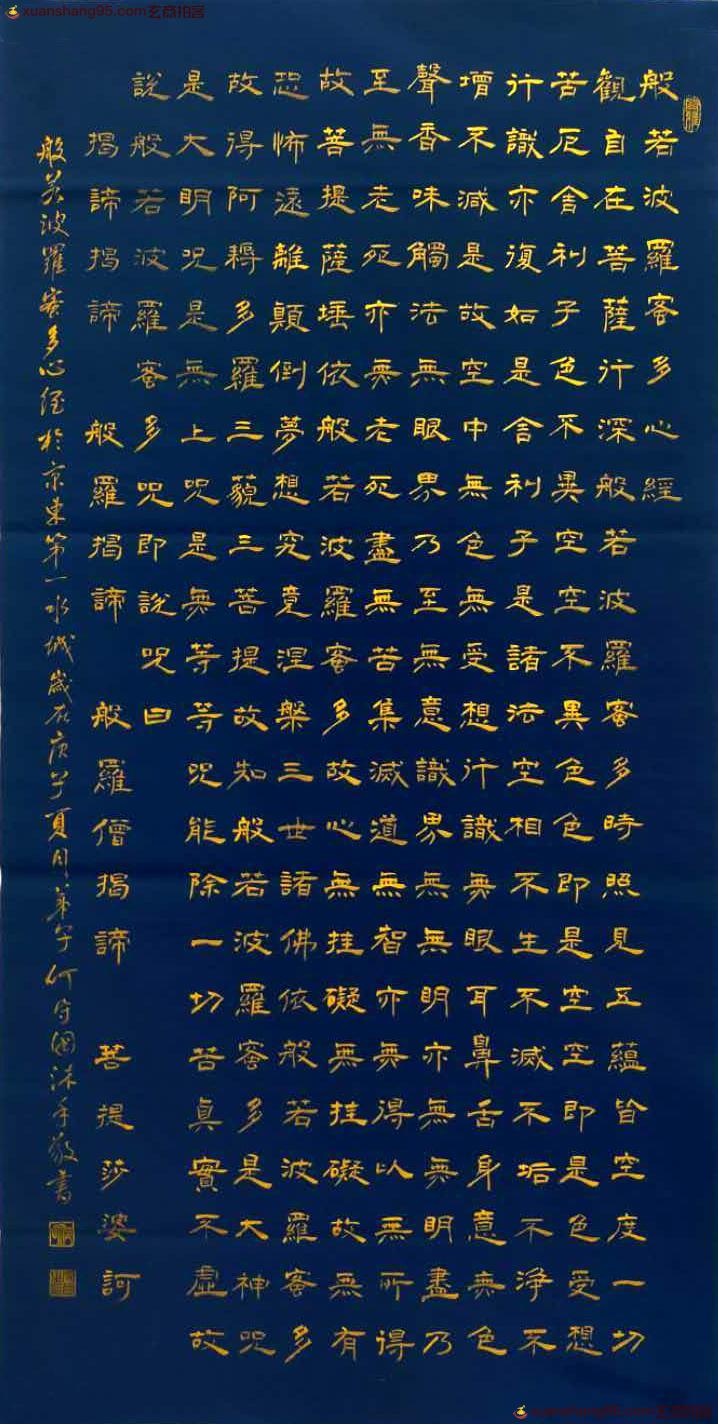 xuanshang95.com玄商拍客
般若波羅蜜多心經
觀自在菩薩行深般若波羅蜜多時照見五蘊皆空度一切
苦厄舍利子色不異空空不異色色即是空空即是色受想
行識亦復如是舍利子是諸法空相不生不滅不垢不淨不
增不減是故空中無色無受想行識無眼耳鼻舌身意無色
聲香味觸法無眼界乃至無意識界無無明亦無無明盡乃
至無老死亦无老死盡無苦集滅道無智亦無得以無所得
故菩提薩埵依般若波羅蜜多故心無挂礙無挂礙故無有
恐怖遠離顛倒夢想究竟涅槃三世諸佛依般若波羅蜜多
故得阿耨多羅三藐三菩提故知般若波羅蜜多是大神咒
是大明咒是無上咒是無等等咒能除一切苦真實不虛故
說般若波羅蜜多咒即說咒曰
揭諦揭諦 般羅揭諦 般羅僧揭諦 菩提莎婆訶
般若波羅蜜多心經於京東第一水城歲在庚子夏月弟子何守國沐手敬書
xuanshang95.com玄商拍客